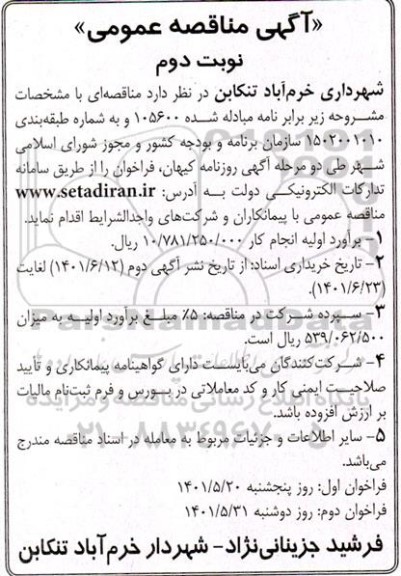 «آگهی مناقصه عمومی»
نوبت دوم
شهرداری خرم‌آباد تنکابن در نظر دارد مناقصه‌ای با مشخصات
مشروحه زیر برابر نامه مبادله شده ۱۰۵۶۰۰ و به شماره طبقه‌بندی
۱۵۰۲۰۰۱۰۱۰ سازمان برنامه و بودجه کشور و مجوز شورای اسلامی
شهر طی دو مرحله آگهی روزنامه کیهان، فراخوان را از طریق سامانه
تدارکات الکترونیکی دولت به آدرس: www.setadiran.ir
مناقصه عمومی با پیمانکاران و شرکت‌های واجدالشرایط اقدام نماید.
۱- برآورد اولیه انجام کار ۱۰/۷۸۱/۲۵۰/۰۰۰ ریال.
۲- تاریخ خریداری اسناد: از تاریخ نشر آگهی دوم (۱۴۰۱/۶/۱۲) لغایت
(۱۴۰۱/۶/۲۳).
۳- سپرده شرکت در مناقصه: ۵٪ مبلغ برآورد اولیه به میزان
۵۳۹/۰۶۲/۵۰۰ ریال است.
۴- شرکت‌کنندگان می‌بایست دارای گواهینامه پیمانکاری و تأیید
صلاحیت ایمنی کار و کد معاملاتی در بورس و فرم ثبت‌نام مالیات
بر ارزش افزوده باشد.
۵- سایر اطلاعات و جزئیات مربوط به معامله در اسناد مناقصه مندرج
می‌باشد.
فراخوان اول: روز پنجشنبه ۱۴۰۱/۵/۲۰
فراخوان دوم: روز دوشنبه ۱۴۰۱/۵/۳۱
فرشید جزینانی‌نژاد- شهردار خرم‌آباد تنکابن